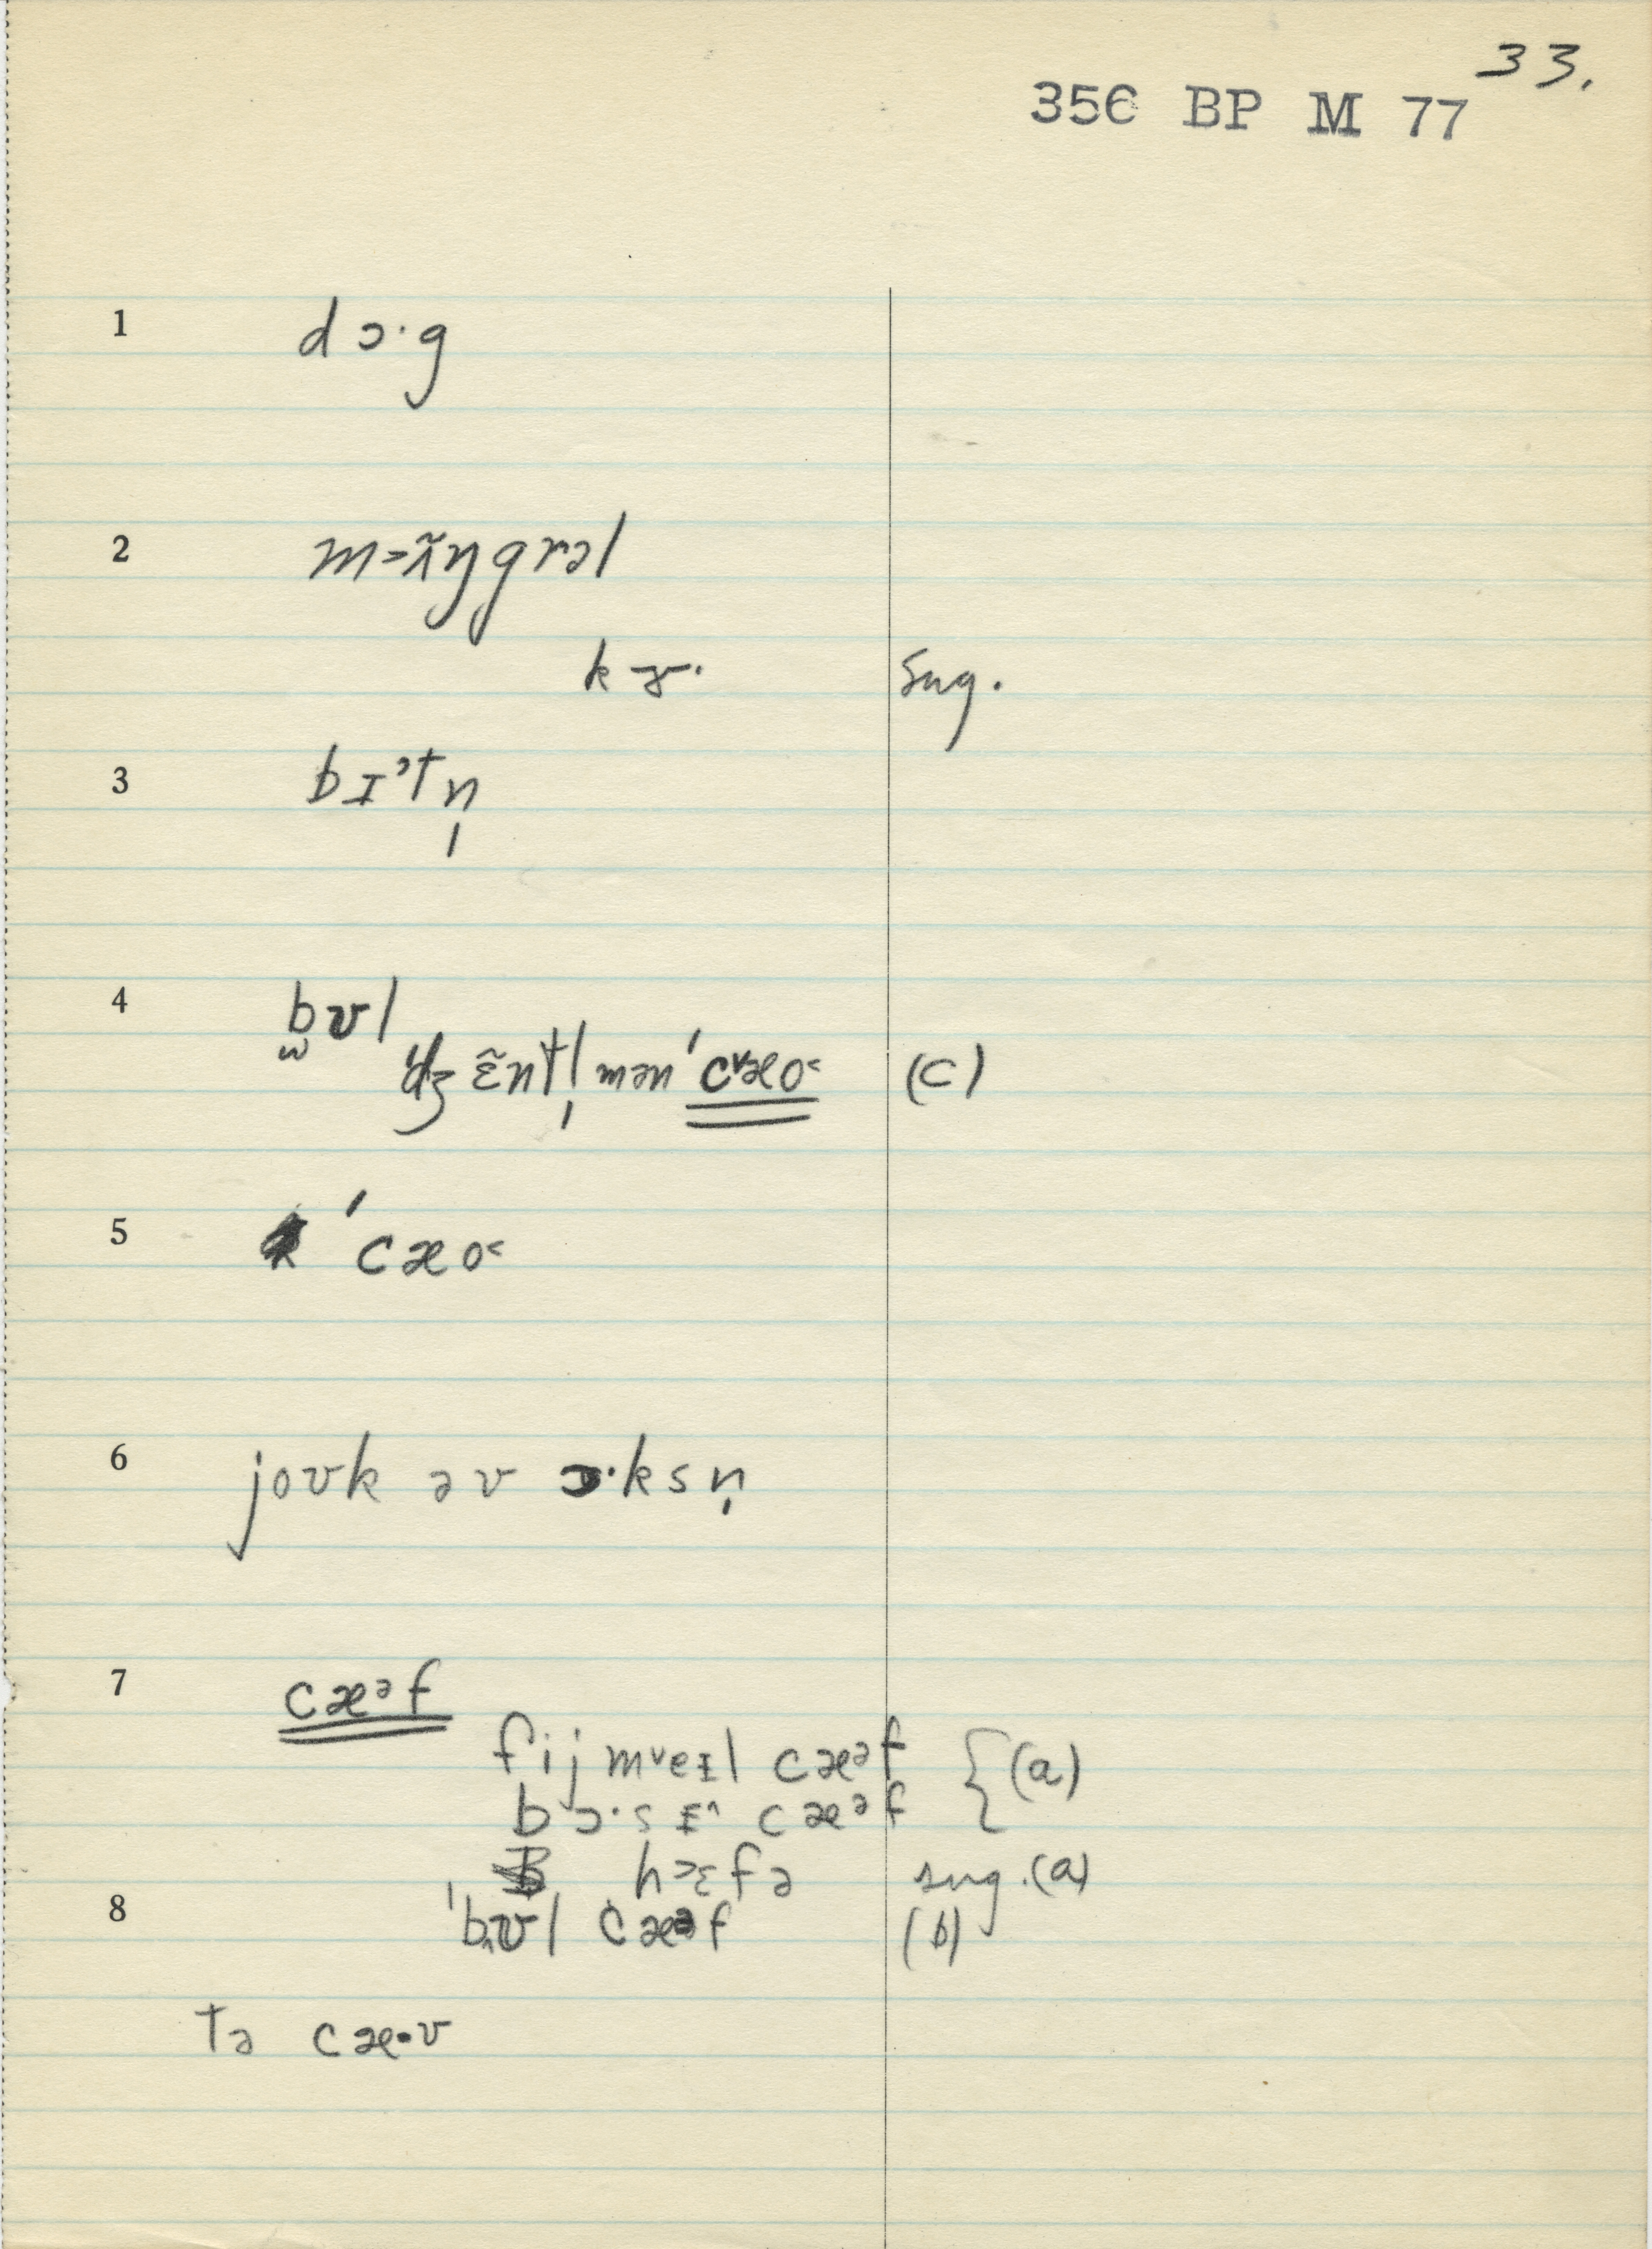 33.
356 BP M 77
1 dɔ·g
2 m>ʌ̃ŋgrəl
kɝ· sug.
3 bɪˀtn̩
4 b̫ʊl
ˈdʒɛ̃ntl̩mən ˈcᵛæo˂ (c)
5 ˈcæo˂
6 joʊk əv ɔ·ksn̩
7 cæᵊf
fijmᵛeɪl cæᵊf { (a)
bɔ·sɪ^ cæᵊf
h>ɛfə sug. (a)
8 ˈbʊl cæᵊf (b)
tə cæ·v